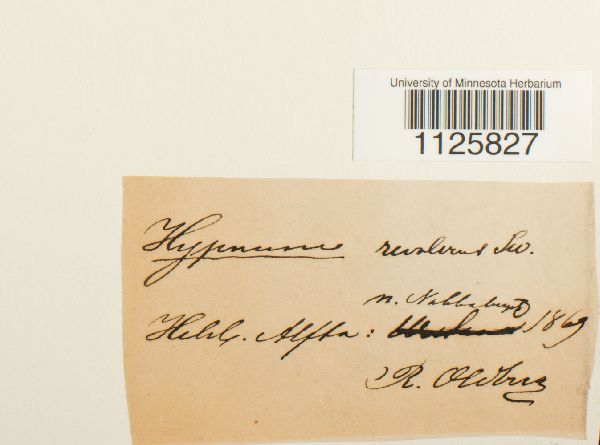 University of Minnesota Herbarium
1125827
Hypnum revolvens Sw.
n.
Hels. Alfta: 1869
R. Oldberg